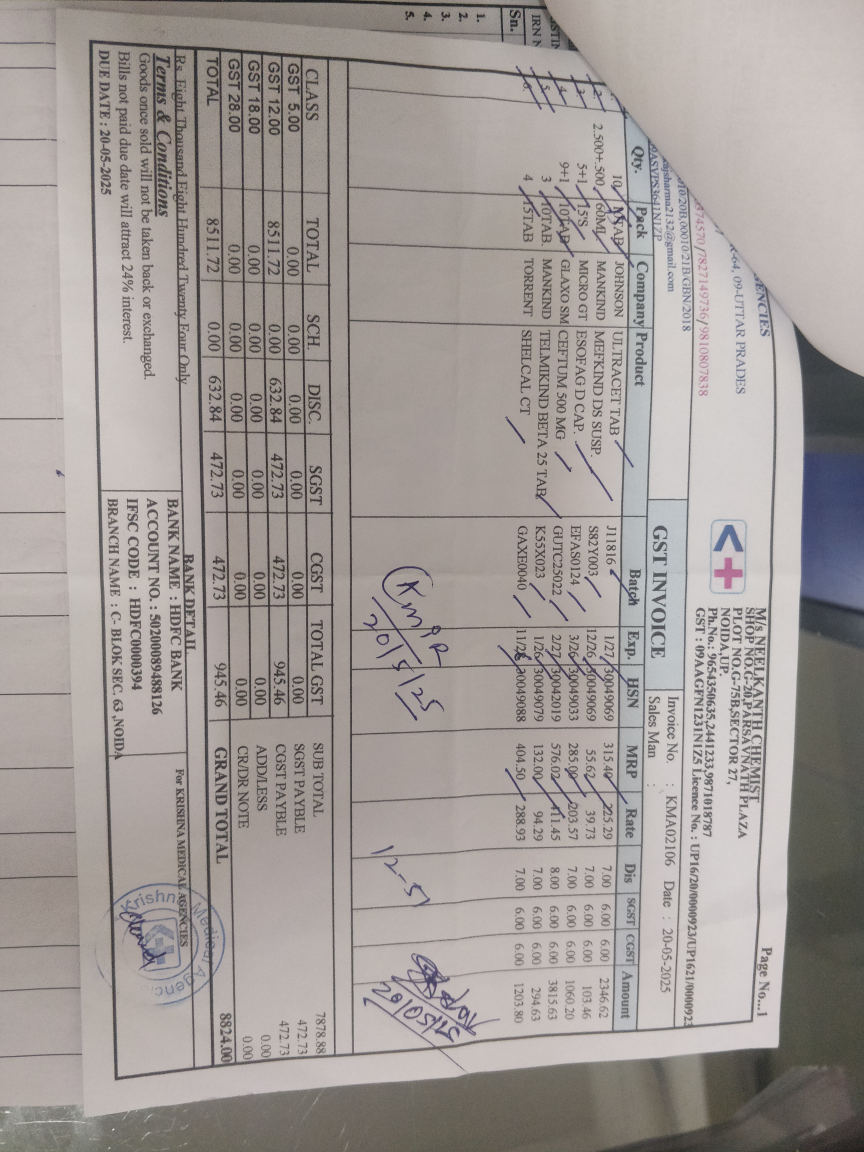 Page No...1
GENCIES
K-64, 09-UTTAR PRADES
474570/7827149736/9810807838
010/20B,00010/21B/GBN/2018
ajsharma2132@gmail.com
09ASVPS3641N1ZP
M/s NEELKANTH CHEMIST
SHOP NO.G-20,PARSAVNATH PLAZA
PLOT NO.G-75B,SECTOR 27,
NOIDA,UP.
Ph.No.: 9654350635,2441233,9871018787
GST : 09AAGFN1231N1Z5 Licence No. : UP16/20/0000923/UP1621/0000923
GST INVOICE
Invoice No. : KMA02106 Date : 20-05-2025
Sales Man :
Qty. Pack Company Product Batch Exp. HSN MRP Rate Dis SGST CGST Amount
10 15TAB JOHNSON ULTRACET TAB J11816 1/27 30049069 315.40 225.29 7.00 6.00 6.00 2346.62
2. 2.500+.500 60ML MANKIND MEFKIND DS SUSP. S82Y003 12/26 30049069 55.62 39.73 7.00 6.00 6.00 103.46
3. 5+1 15'S MICRO GT ESOFAG D CAP. EFAS0124 3/26 30049033 285.00 203.57 7.00 6.00 6.00 1060.20
4. 9+1 10TAB GLAXO SM CEFTUM 500 MG GUTC25022 2/27 30042019 576.02 411.45 8.00 6.00 6.00 3815.63
5. 3 10TAB. MANKIND TELMIKIND BETA 25 TAB K55X023 1/26 30049079 132.00 94.29 7.00 6.00 6.00 294.63
6. 4 15TAB TORRENT SHELCAL CT GAXE0040 11/26 30049088 404.50 288.93 7.00 6.00 6.00 1203.80
20/5/25
12-51
20/05/25
CLASS TOTAL SCH. DISC. SGST CGST TOTAL GST
GST 5.00 0.00 0.00 0.00 0.00 0.00 0.00
GST 12.00 8511.72 0.00 632.84 472.73 472.73 945.46
GST 18.00 0.00 0.00 0.00 0.00 0.00 0.00
GST 28.00 0.00 0.00 0.00 0.00 0.00 0.00
TOTAL 8511.72 0.00 632.84 472.73 472.73 945.46
SUB TOTAL 7878.88
SGST PAYBLE 472.73
CGST PAYBLE 472.73
ADD/LESS 0.00
CR/DR NOTE 0.00
GRAND TOTAL 8824.00
Rs. Eight Thousand Eight Hundred Twenty Four Only
Terms & Conditions
Goods once sold will not be taken back or exchanged.
Bills not paid due date will attract 24% interest.
DUE DATE : 20-05-2025
BANK DETAIL
BANK NAME : HDFC BANK
ACCOUNT NO. : 50200089488126
IFSC CODE : HDFC0000394
BRANCH NAME : C- BLOK SEC. 63 ,NOIDA
For KRISHNA MEDICAL AGENCIES
Krishna Medical Agencies
IRN N
Sn.
1.
2.
3.
4.
5.